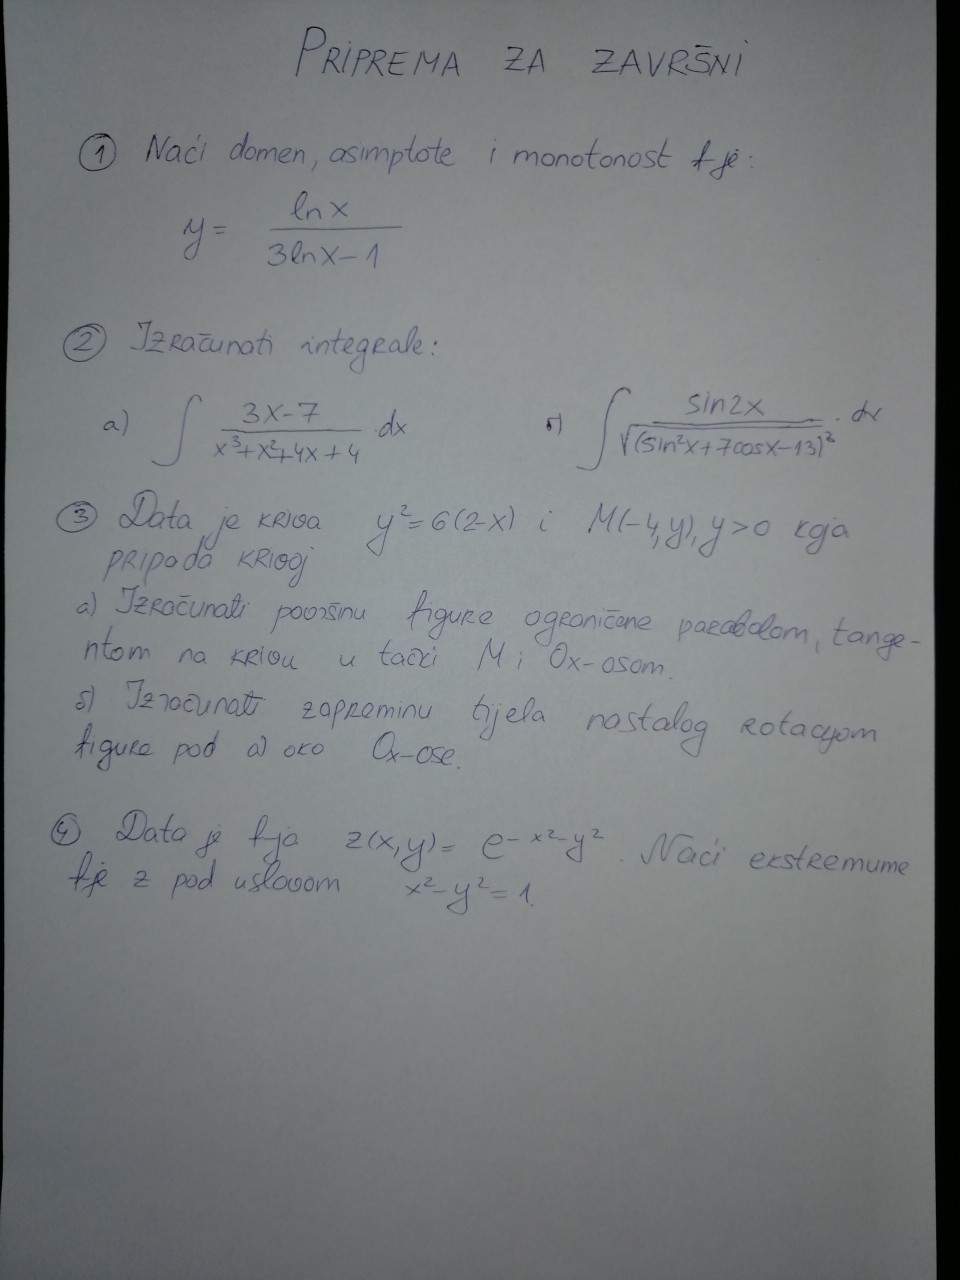 PRIPREMA ZA ZAVRŠNI
① Naći domen, asimptote i monotonost f-je:
y = ln x / (3lnx - 1)
② Izračunati integrale:
a) ∫ (3x-7) / (x³+x²+4x+4) · dx    б) ∫ sin2x / √(sin²x+7cosx-13)² · dx
③ Data je kriva y² = 6(2-x) i M(-4,y), y>0 koja
pripada krivoj
a) Izračunati površinu figure ograničene parabolom, tange-
ntom na krivu u tački M i Ox-osom.
б) Izračunati zapreminu tijela nastalog rotacijom
figure pod a) oko Ox-ose.
④ Data je f-ja z(x,y) = e^(-x²-y²). Naći ekstremume
f-je z pod uslovom x²-y²=1.